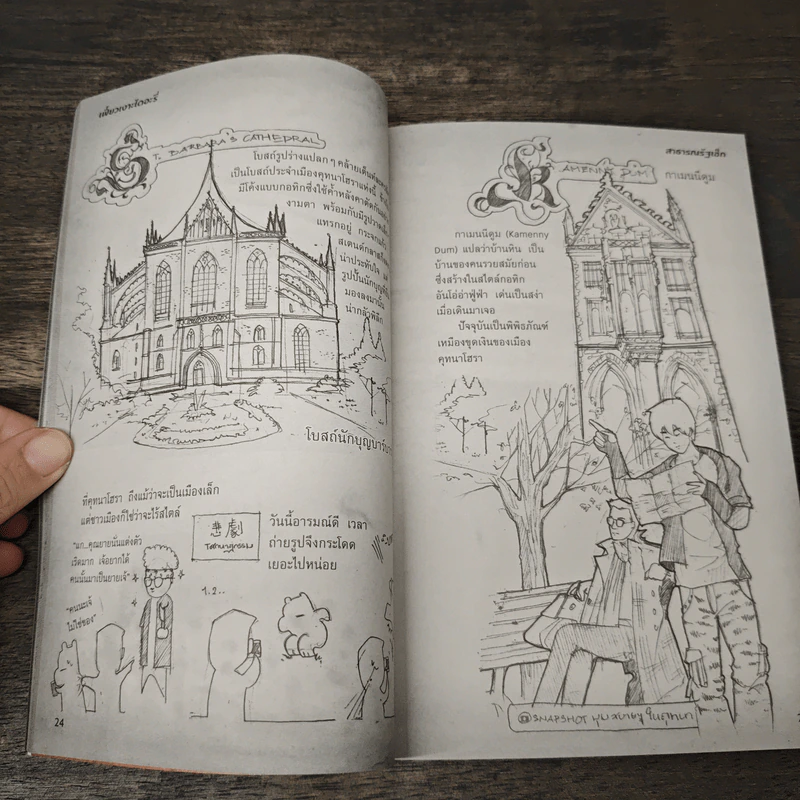 เที่ยวเจาะโตเอะรี่
ST. BARBARA'S CATHEDRAL
โบสถ์รูปร่างแปลก ๆ คล้ายเต็นท์
เป็นโบสถ์ประจำเมืองคุทนาโฮราแห่งนี้
มีโค้งแบบกอทิกซึ่งใช้ค้ำหลังคาตัดกัน
งามตา พร้อมกับมีรูปวาด
แทรกอยู่ กระจกแก้ว
สเตนด์กลาส
น่าประทับใจ
รูปปั้นนักบุญ
มองลงมา
น่ากลัวพิลึก
โบสถ์นักบุญบาร์บารา
ที่คุทนาโฮรา ถึงแม้ว่าจะเป็นเมืองเล็ก
แต่ชาวเมืองก็ใช่ว่าจะไร้สไตล์
"แก...คุณยายนั่นแต่งตัว
เริ่ดมาก เจ้อยากได้
คนนั้นมาเป็นยายเจ้"
"คนนะเจ้
ไม่ใช่ของ"
悲劇
วันนี้อารมณ์ดี เวลา
ถ่ายรูปจึงกระโดด
เยอะไปหน่อย
1.2..
24
สาธารณรัฐเช็ก
KAMENNY DUM
กาเมนนีดูม
กาเมนนีดูม (Kamenny
Dum) แปลว่าบ้านหิน เป็น
บ้านของคนรวยสมัยก่อน
ซึ่งสร้างในสไตล์กอทิก
อันโอ่อ่าฟู่ฟ่า เด่นเป็นสง่า
เมื่อเดินมาเจอ
ปัจจุบันเป็นพิพิธภัณฑ์
เหมืองขุดเงินของเมือง
คุทนาโฮรา
SNAPSHOT มุมสบายๆ ในคุทนา